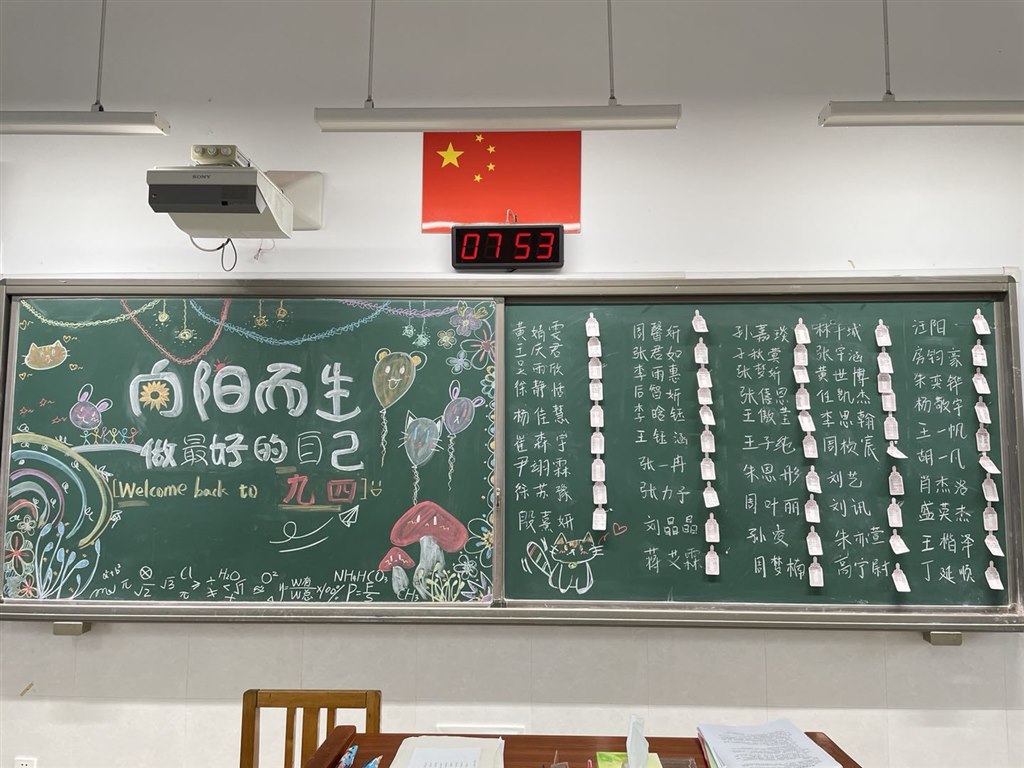 SONY
07 53
向阳而生
做最好的自己
[Welcome back to 九四]
NH₄HCO₃
H₂O
CH₄
黄 婧 雯
王 庆 君
吴 雨 欣
徐 静 恬
杨 佳 慧
崔 森 宇
尹 翊 霖
徐 苏 豫
殷 熹 妍
周 馨 妍
张 君 如
李 雨 惠
后 笛 妍
李 晗 钰
王 钰 涵
张 一 冉
张 力 予
刘 晶晶
蒋 艾 霖
孙 嘉 琰
子 秋 萱
张 梦 妍
张 倩 思
王 傲 莹
王 子 纯
朱 思 彤
周 叶 丽
孙 凌
周 梦 楠
林 千 城
张 宇 涵
黄 世 博
任 凯 杰
李 思 翰
周 欣 宸
刘 艺
刘 讯
朱 亦 萱
高 宁 尉
汪 阳
房 钧 豪
朱 奕 铧
杨 敬 宇
王 一 帆
胡 一 凡
肖 杰 洛
盛 英 杰
王 楷 泽
丁 延 顺